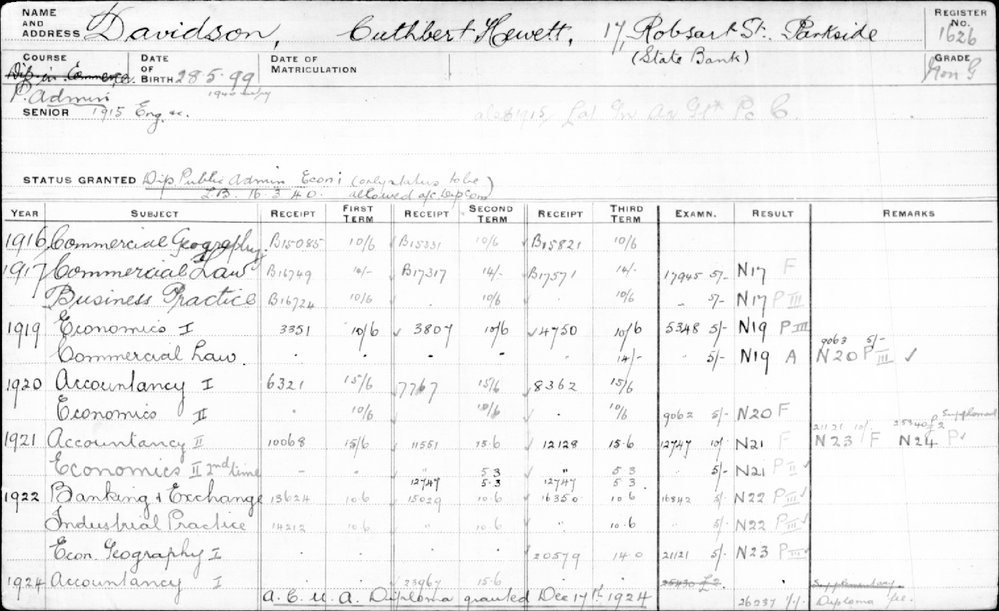 NAME AND ADDRESS Davidson, Cuthbert Hewett, 17, Robsart St. Parkside REGISTER No. 1626
(State Bank)
COURSE Dip. in Commerce DATE OF BIRTH 28.5.99 DATE OF MATRICULATION GRADE Hon G
P. Admin
SENIOR 1915 Eng.
STATUS GRANTED Dip. Public Admin Econ i (only status to be
16.3.40. allowed a/c Dip Com)
YEAR SUBJECT RECEIPT FIRST TERM RECEIPT SECOND TERM RECEIPT THIRD TERM EXAMN. RESULT REMARKS
1916 Commercial Geography B15085 10/6 B15331 10/6 B15821 10/6
1917 Commercial Law B16749 14/- B17317 14/- B17571 14/- 17945 5/- N17 F
Business Practice B16724 10/6 " 10/6 " 10/6 " 5/- N17 P III
1919 Economics I 3351 10/6 3807 10/6 4750 10/6 5348 5/- N19 P III
9063 5/-
Commercial Law. . . . . . 14/- . 5/- N19 A N20 P III ✓
1920 Accountancy I 6321 15/6 7767 15/6 8362 15/6
Economics II . 10/6 . 10/6 . 10/6 9062 5/- N20 F
21121 10/- 25340 £2 Supplementary
1921 Accountancy II 10068 15/6 11551 15.6 12128 15.6 12747 10/- N21 F N23 F N24 P ✓
Economics II 2nd time - - " 5.3 " 5 3 . 5/- N21 P II ✓
12747 5.3 12747 5 3
1922 Banking & Exchange 13624 10.6 15029 10.6 16350 10 6 16842 5/- N22 P III ✓
Industrial Practice 14212 10.6 " 10.6 . 10.6 . 5/- N22 P III ✓
Econ. Geography I . . . . 20579 14 0 21121 5/- N23 P III ✓
1924 Accountancy I . . 23967 15.6 . . 25430 £2. Supplementary
A.C.U.A. Diploma granted Dec 17th 1924 26237 1/1. Diploma fee.